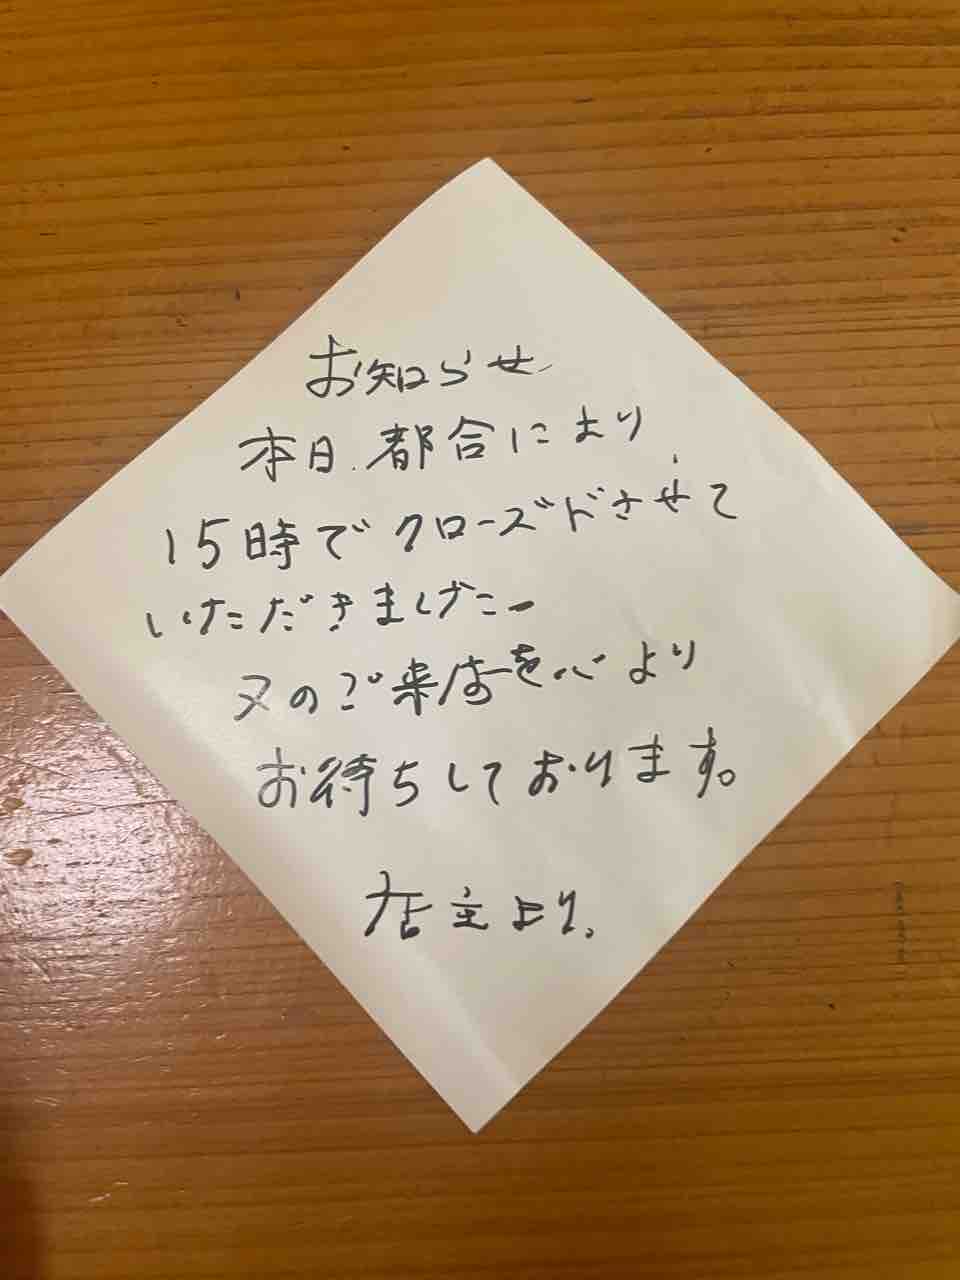 お知らせ
本日.都合により
15時でクローズドさせて
いただきました
又のご来店を心より
お待ちしております。
店主より.